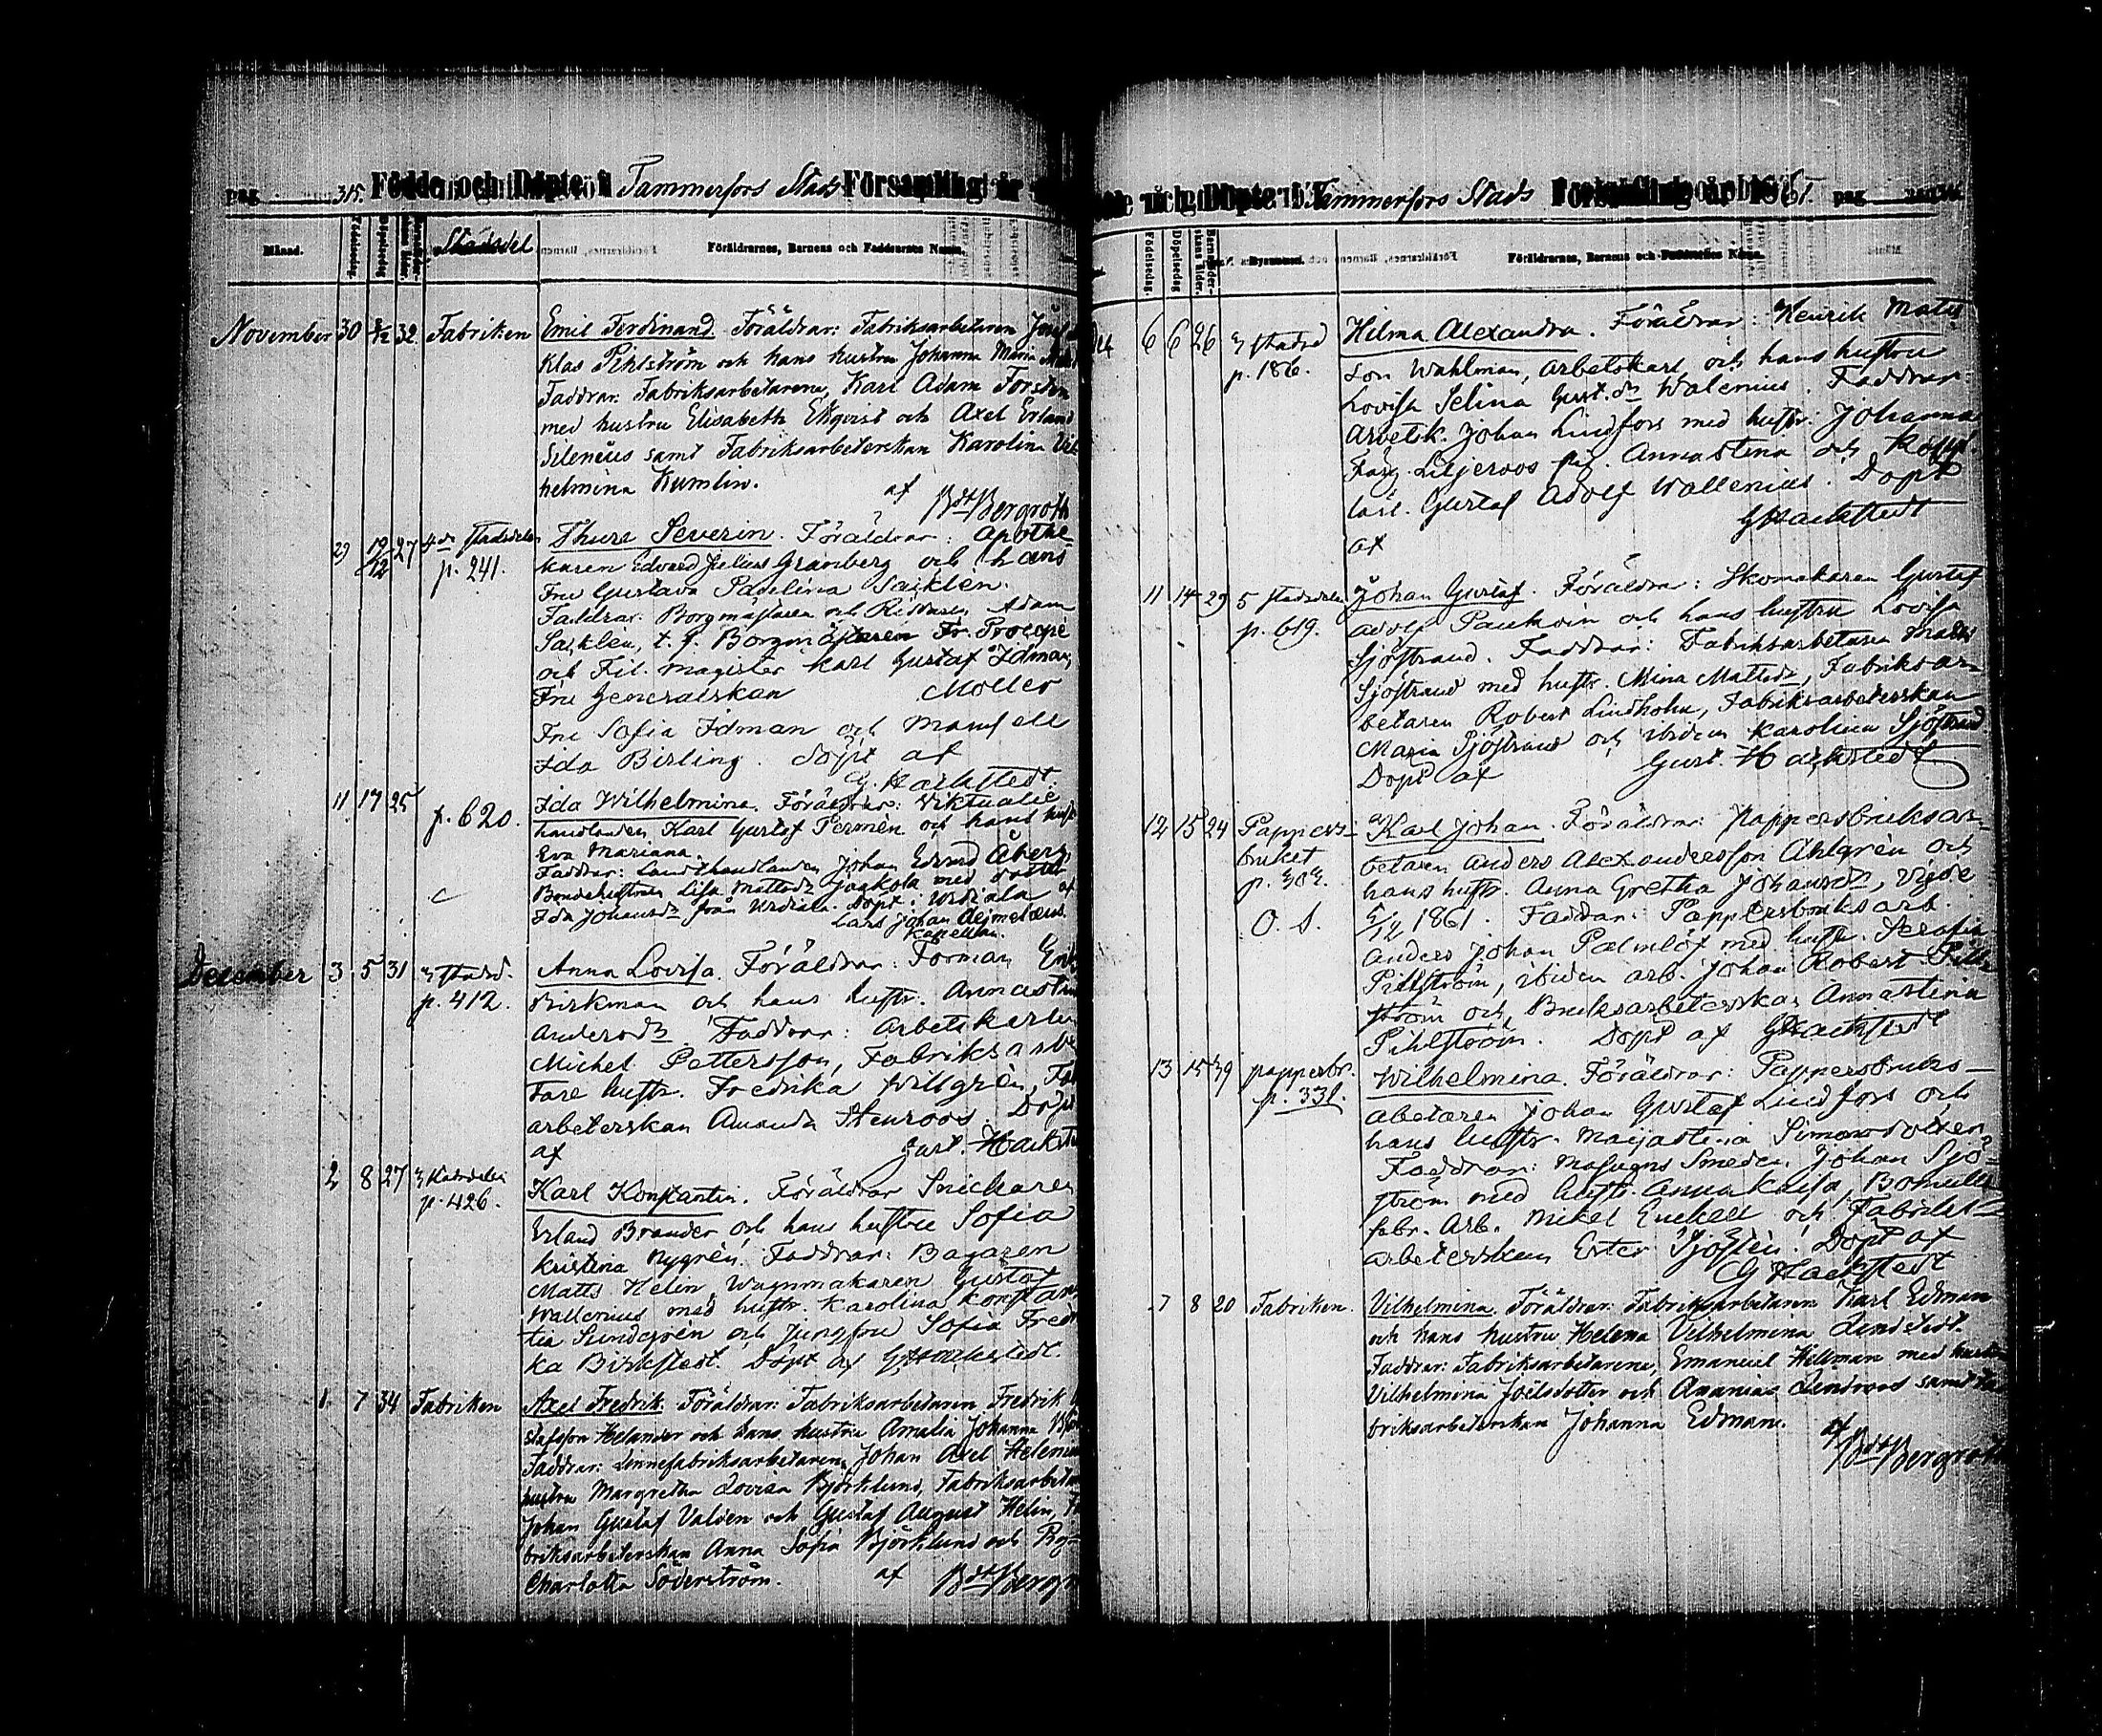 pag 315. Födde och Döpte i Tammerfors Stads Församling år
Månad. Födelsedag. Döpelsedag Stadsdel Föräldrarnes, Barnens och Faddrarnes Namn.
November 30 32 Fabriken Emil Ferdinand. Föräldrar: Fabriksarbetaren
Klas Pihlström och hans hustru Johanna Maria
Faddrar: Fabriksarbetarene, Karl Adam Forsten
med hustru Elisabeth Ekqvist och Axel Erland
Silenius samt Fabriksarbeterskan Karolina Vil
helmina Kumlin.
af Bergroth
29 19/12 27 4de stadsdelen Thure Severin. Föräldrar: Apothe-
p. 241. karen Edvard Julius Granberg och hans
Fru Gustava Paulina Sacklén.
Faddrar: Borgmästaren och Riddaren Adam
Sacklén, t. f. Borgmästaren Fr. Procopé
och Fil. Magister Karl Gustaf Idman,
Fru Generalskan Möller
Fru Sofia Idman och Mamsell
Ida Birling. Döpt af
G. Hackstedt.
11 17 25 p. 620. Ida Wilhelmina. Föräldrar: Viktualie
handlanden Karl Gustaf Permén och hans hust
Eva Mariana.
Faddrar: Landthandlanden Johan Edvard Åberg,
Bondehustrun Lisa Mattsdr Jaakola med
Ida Johansdr från Urdiala. Döpt i Urdiala af
Lars Johan Aejmelæus
Kapellan.
December 3 5 31 3 stadsd. Anna Lovisa. Föräldrar: Forman
p. 412. Birkman och hans hustr. Annastina
Andersdr. Faddrar: Arbetskarlen
Michel Pettersson, Fabriksarbe
tare hustr. Fredrika Willgrén,
arbeterskan Amanda Stenroos. Döpt
af Gust.
2 8 27 3 Stadsdelen Karl Konstantin. Föräldrar Snickaren
p. 426. Erland Brander och hans hustru Sofia
Kristina Nygrén. Faddrar: Bagaren
Matts Helin, Wagnmakaren Gustaf
Wallenius med hustr. Karolina Konstan
tia Sundgrén och Jungfru Sofia Fredri
ka Birkstedt. Döpt af G Hackstedt.
1 7 34 Fabriken Axel Fredrik. Föräldrar: Fabriksarbetaren Fredrik
stafsson Helander och hans hustru Amalia Johanna
Faddrar: Linnefabriksarbetaren Johan Axel Helenius
hustru Margretha Lovisa Björklund, Fabriksarbetar
Johan Gustaf Valden och Gustaf August Helin,
briksarbeterskan Anna Sofia Björklund och
Charlotta Söderström. af
Döpte i Tammerfors Stads Församling år 1861. pag
Födelsedag. Döpelsedag Föräldrarnes, Barnens och Faddrarnes Namn.
6 6 26 3 stadsd Hilma Alexandra. Föräldrar: Henrik Mats
p. 186. son Wahlman, arbetskarl och hans hustru
Lovisa Selina Gust.dr Walenius. Faddrar:
Arbetsk. Johan Lindfors med hustr: Johanna
Liljeroos Annastina och
Gustaf Adolf Wallenius. Döpt
af G Hackstedt
11 14 29 5 stadsdelen Johan Gustaf. Föräldrar: Skomakaren Gustaf
p. 619. Adolf och hans hustru Lovisa
Sjöstrand. Faddrar: Fabriksarbetaren Matts
Sjöstrand med hustr. Mina Mattsdr, Fabriksar-
betaren Robert Lindholm, Fabriksarbeterskan
Maria Sjöstrand och ibidem Karolina Sjöstrand
Döpt af Gust. Hackstedt
12 15 24 Pappers- Karl Johan. Föräldrar: Pappersbruksar-
bruket betaren Anders Alexandersson Ahlgrén och
p. 303. hans hustr. Anna Gretha Johansdr, vigde
O. S. 5/12 1861. Faddrar: Pappersbruksarb.
Anders Johan Palmlöf med hustr. Serafia
Pihlström, ibidem arb. Johan Robert Pihl
ström och Bruksarbeterskan Annastina
Pihlström. Döpt af G Hackstedt
13 15 39 pappersbr. Wilhelmina. Föräldrar: Pappersbruks-
p. 331. abetaren Johan Gustaf Lindfors och
hans hustr. Maijastina Simonsdotter
Faddrar: Masugns Smeden Johan Sjö-
ström med hustr. Anna Kaisa, Bomulls
fabr. Arb. Mikel Enckell och Fabriks-
arbeterskan Ester Sjöstén. Döpt af
G Hackstedt
7 8 20 Fabriken. Vilhelmina. Föräldrar: Fabriksarbetaren Karl Edman
och hans hustru Helena Vilhelmina Lindstedt.
Faddrar: Fabriksarbetarene, Emanuel Hellman med hustru
Vilhelmina Joelsdotter och Ananias Lindroos samt Fa
briksarbeterskan Johanna Edman.
af Bergroth